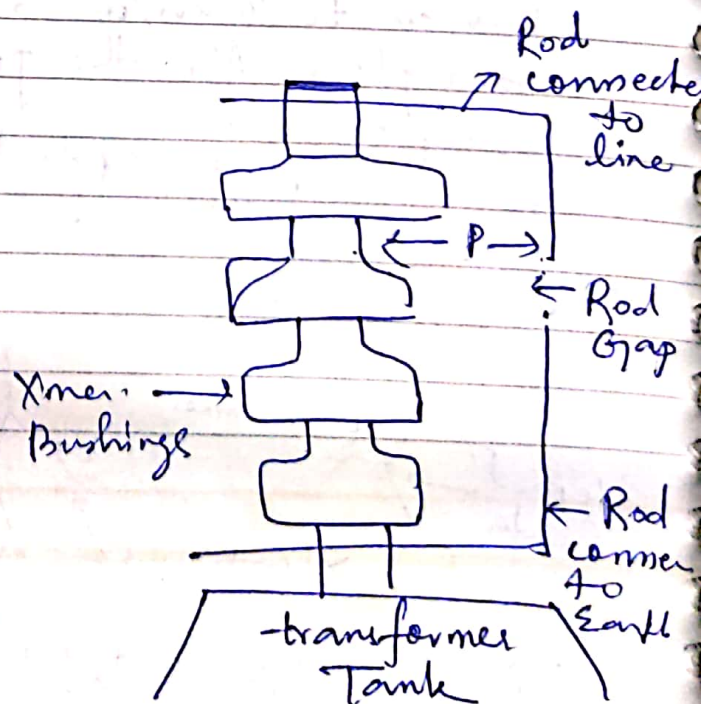 Rod
connecte
to
line
P
Rod
Gap
Xmer.
Bushings
Rod
connec
to
Earth
transformer
Tank